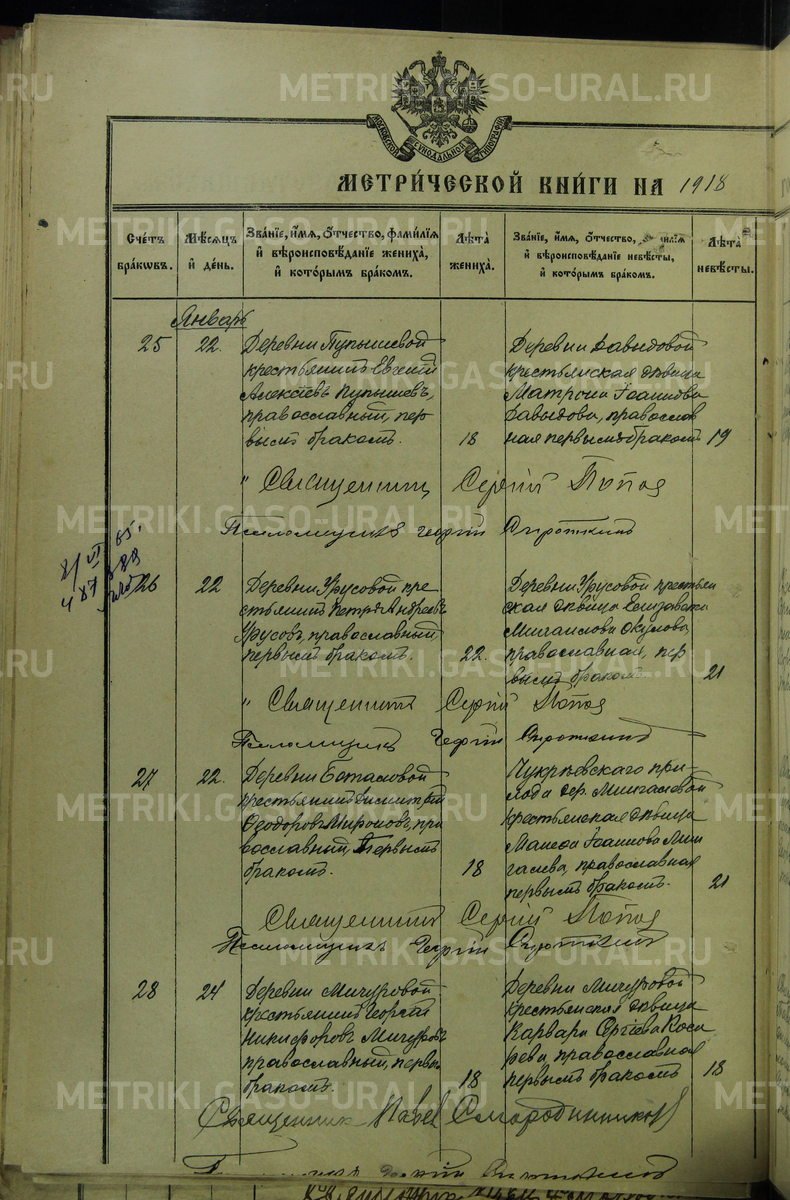 МОСКОВСКОЙ СУНОДАЛЬНОЙ ТИПОГРАФІИ
МЕТРИ́ЧЕСКОЙ КНИ́ГИ НА 1918
Сче́тъ бра́кѡвъ.
Мѣ́сѧцъ и де́нь.
Зва́нїе, и́мѧ, ѻ́тчество, фами́лїѧ и вѣроисповѣ́данїе жениха̀, и кото́рымъ бра́комъ.
Лѣта̀ жениха̀.
Зва́нїе, и́мѧ, ѻ́тчество, илїѧ и вѣроисповѣ́данїе невѣ́сты, и кото́рымъ бра́комъ.
Лѣта̀ невѣ́сты.
Январь
25
22.
Деревни Пупышевой
крестьянинъ Евгений
Алексѣевъ Пупышевъ,
православный, пер
вымъ бракомъ.
18
Деревни Давыдовой
крестьянская дѣвица
Матрона Іоаннова
Давыдова, православ
ная первымъ бракомъ
19
" Священникъ Сергій Попов
Псаломщикъ Георгій Сироткинъ
26
22
Деревни Урусовой кре
стьянинъ Петръ Андреевъ
Урусовъ, православный
первымъ бракомъ.
22.
Деревни Урусовой крестьян
ская дѣвица Елизавета
Михаилова Окулова,
православная, пер
вымъ бракомъ.
21
" Священникъ Сергій Попов
Псаломщикъ Георгій Сироткинъ
27
22.
Деревни
крестьянинъ Димитрій
Ѳеодоровъ Мироновъ, пра
вославный, первымъ
бракомъ.
18
при-
хода дер. Мингалевой
крестьянская дѣвица
Іоаннова Мин
галева, православная
первымъ бракомъ.
21
Священникъ Сергій Попов
Псаломщикъ Георгій Сироткинъ
28
24
Деревни Мичуровой
крестьянинъ Георгій
Никифоровъ Мичуровъ
православный, первы
бракомъ.
18
Деревни Мичуровой
крестьянская дѣвица
Варвара Сергіева Коса
рева, православная
первымъ бракомъ
18
Священник Павел Смородинников
METRIKI.GASO-URAL.RU